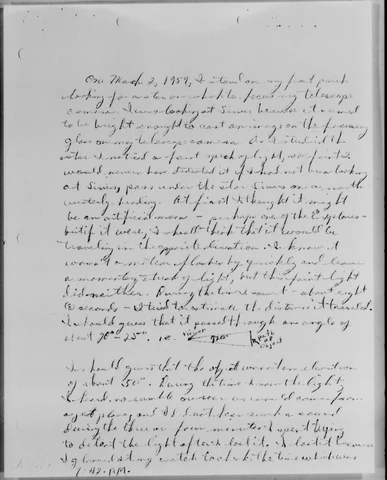 On March 2, 1959, I stood on my front porch
looking for a star on which to focus my telescope
camera. I was looking at Sirius because it seemed
to be bright enough to cast an image on the focusing
glass on my telescope camera. As I studied the
star I noticed a faint speck of light, so faint I
would never have detected it if I had not been looking
at Sirius, pass under the star Sirius on a north
westerly heading. At first I thought it might
be an artificial moon - perhaps one of the Explorers -
but if it were, I should think that it would be
traveling in the opposite direction. I know it
wasn't a meteor flashes by quickly and leave
a momentary streak of light, but this faint light
did neither. During the time I saw it - about eight
seconds - I tried to estimate the distance it traveled.
I should guess that it passed through an angle of
about 20° - 25°. i.e. path of object
I should guess that the object was at an elevation
of about 50°. During the time I saw the light,
I heard no rumble or roar as would come from
a jet plane, and I did not hear such a sound
during the three or four minutes I spent trying
to detect the light after I lost it. I lost it because
I glanced at my watch to check the time which was
7:42 P.M.